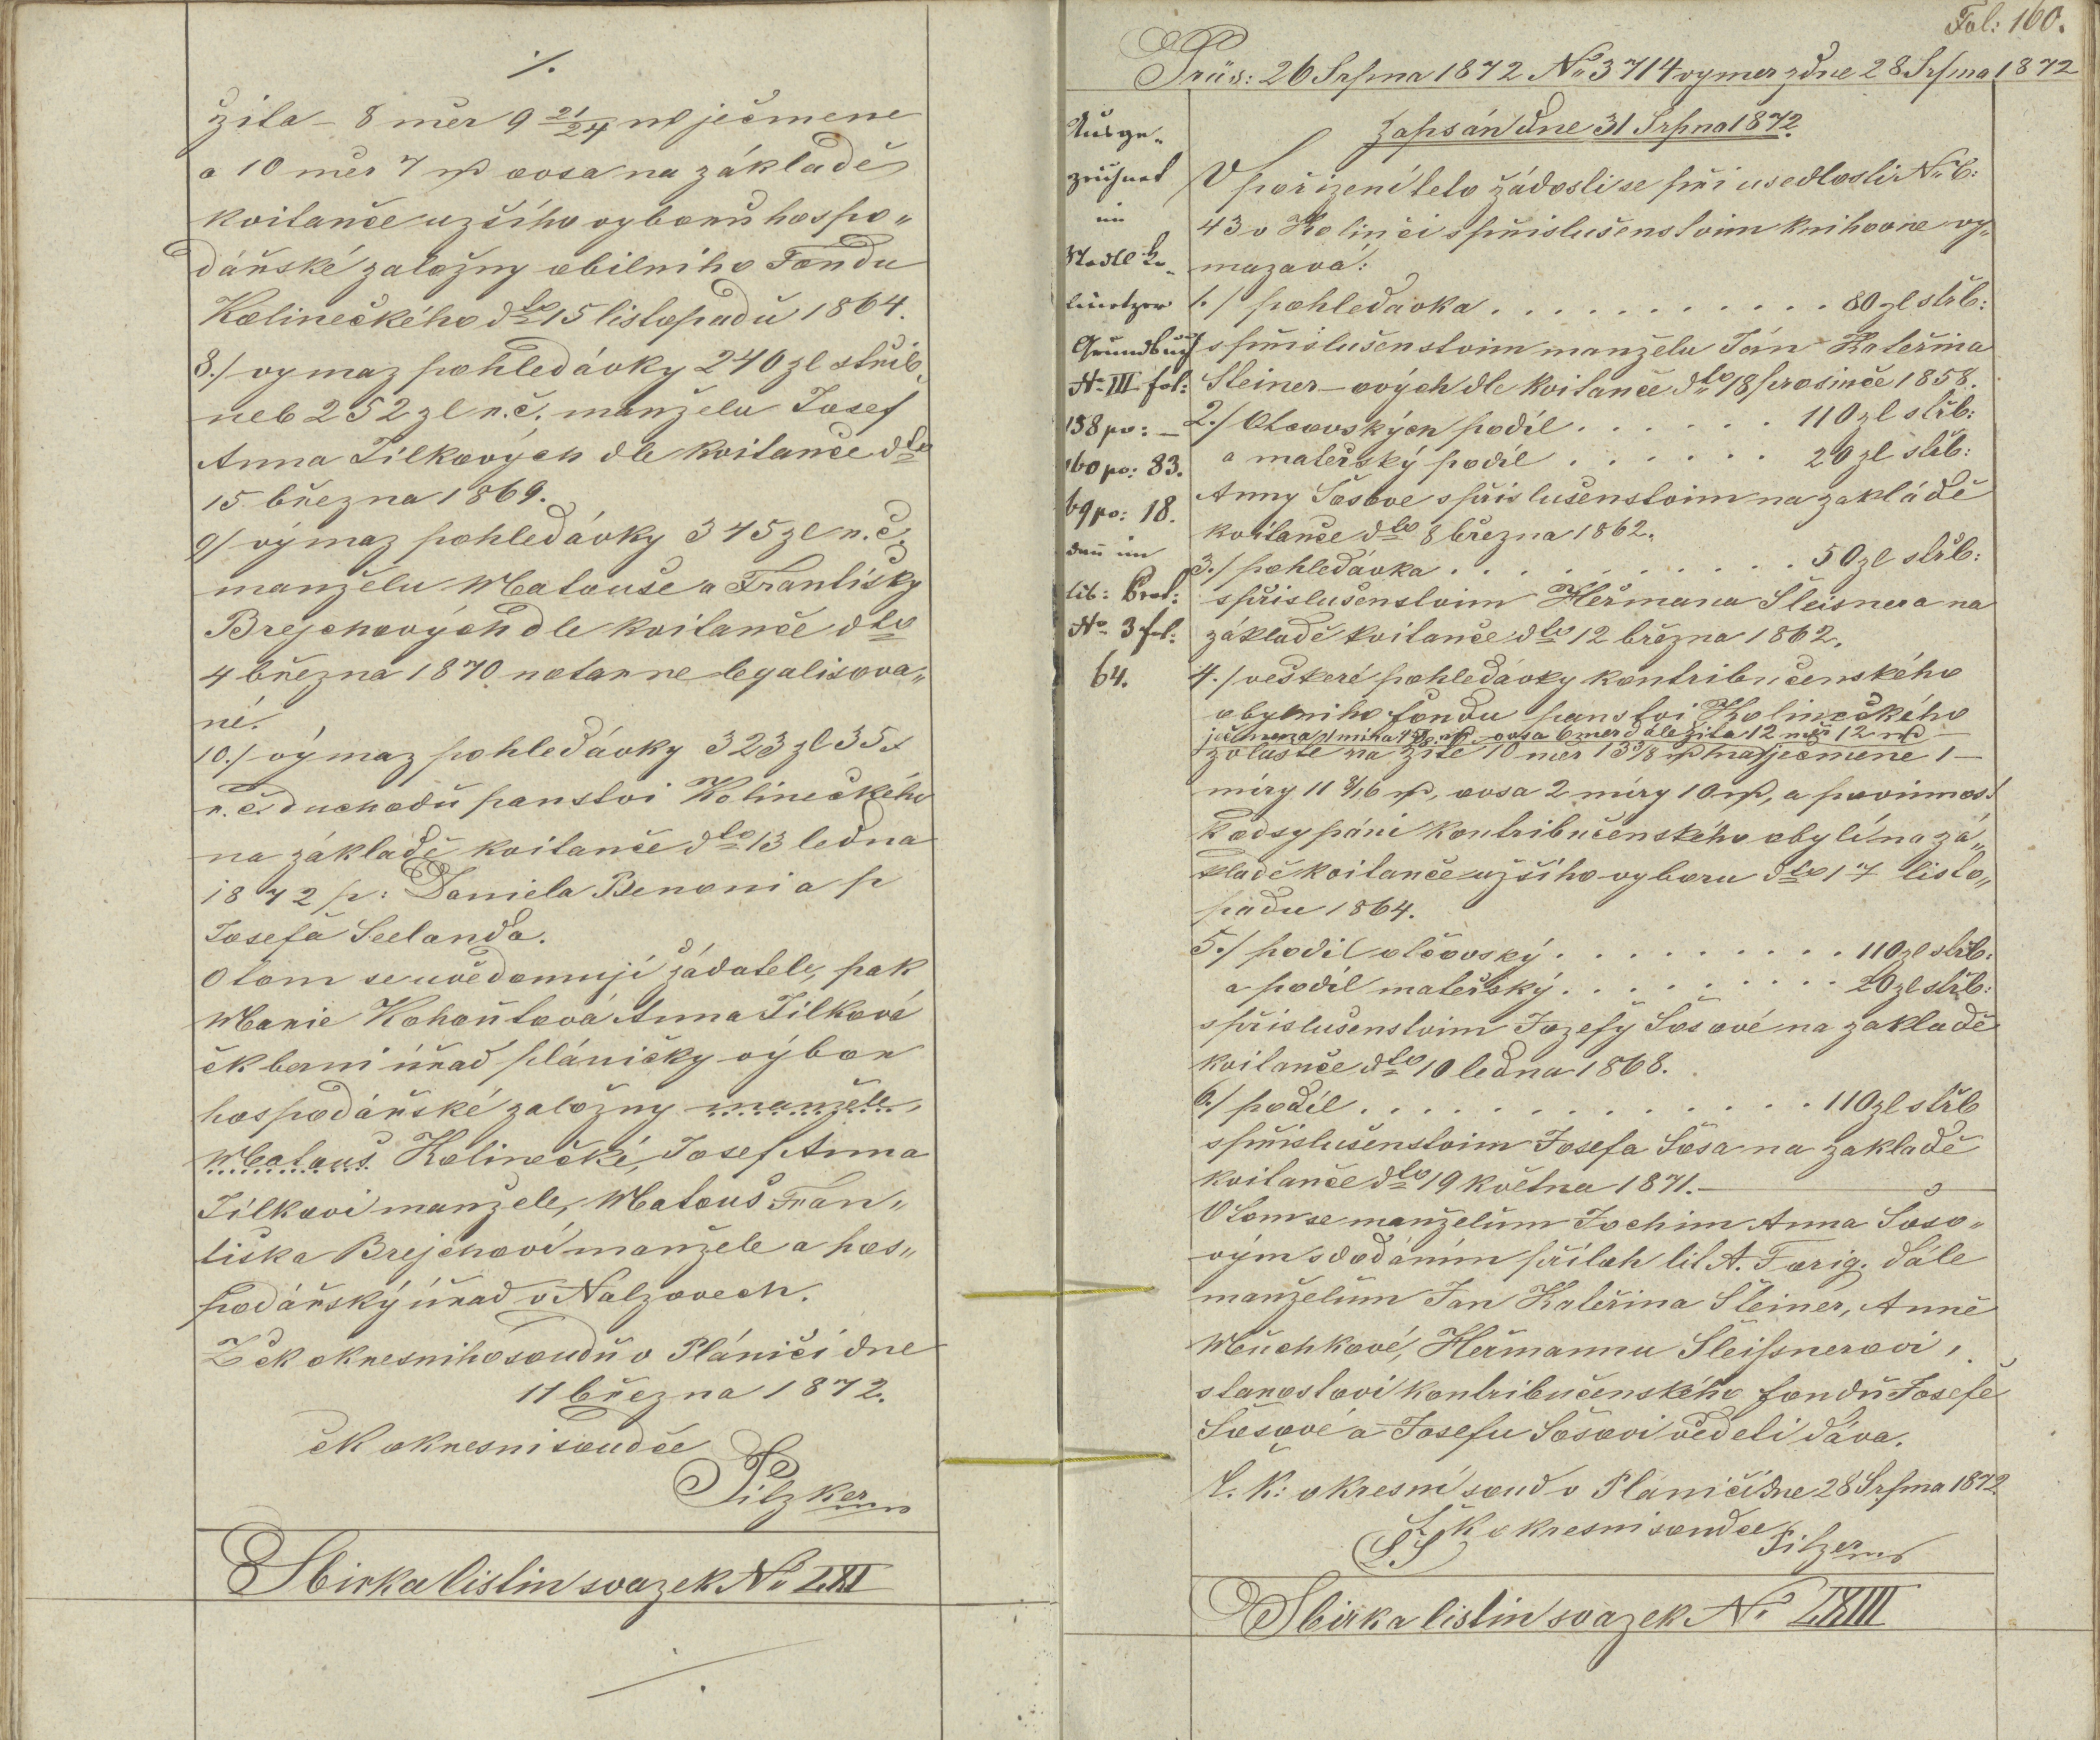 ./.
žita – 8 měr 9 21/24 ml ječmene
a 10 měr 7 ml ovsa na základě
kvitance užšího vyborů hospo„
dářské založny obilního Fondu
Kolineckého dto 15 listopadů 1864.
8./ vymaz pohledávky 240 zl střib.
neb 252 zl r. č. manželu Josef
Anna Tilkových dle kvitance dto
15 března 1869.
9/ výmaz pohledávky 345 zl r. č.
manželu Matouše a Františky
Brejchových dle kvitance dto
4 března 1870 notarne legalisova„
né.
10./ výmaz pohledávky 323 zl 35 x
r. č. duchodů panství Kolineckého
na základě kvitance dto 13 ledna
1872 p: Daniela Benoni a p
Josefa Seelanda.
O tom se uvědomují žádatele, pak
Marie Kohoutová Anna Tilková
čk berni úřad plánický výbor
hospodářské založny manžele,
Matouš Kolinecké, Josef Anna
Tilkovi manžele, Matouš Fran„
tiska Brejchoví manžele a hos„
podářský úřad v Nalzovech.
Z čk okresniho soudů v Plánici dne
11 března 1872.
čk okresni soudce
Pilzker mp
Sbirka listin svazek No LXI
Fol: 160.
Präs: 26 Srpna 1872 No 3714 vymer z dne 28 Srpna 1872
Zapsán dne 31 Srpna 1872.
Ausge„
zeichnet
im
Stadl Ko„
linetzer
Grundbuch
No III fol:
158 po: –
160 po: 83.
69 po: 18.
dan im
lib: Prot:
No 3 fol:
64.
V pořizení teto žádosti se při usedlosti No C:
43 v Kolinci s přislušenstvim knihovne vy„
mazavá:
1./ pohledavka . . . . . . . . . . . 80 zl střb:
s přislušenstvim manželu Ján Kateřina
Steiner–ových dle kvitance dto 18 prosince 1858.
2./ Otcovských podíl . . . . . . 110 zl střb:
a mateřský podíl . . . . . . 20 zl střb:
Anny Šosove s přislušenstvim na zakládě
kvitance dto 8 března 1862.
3./ pohledávka . . . . . . . . . . . 50 zl střb:
s přislušenstvim Heřmana Šteisnera na
základě kvitance dto 12 března 1862.
4./ veškeré pohledávky kontribučenského
obylniho fondu panství Kolineckého
ječmena 1 mira ovsa 6 mer dále žita 12 měr 12 ml
zvlaste na žitě 10 měr 13 3/8 ml na ječmene 1 –
míry 11 8/16 ml, ovsa 2 míry 10 ml, a povinnost
k odsypáni kontribučenského obylí na zá„
kladě kvitance užšího vyboru dto 17 listo„
padu 1864.
5./ podil otcovský . . . . . . . . . 110 zl střb:
a podíl mateřský . . . . . . . . . 20 zl střb:
s přislušenstvim Jozefy Šosové na zakladě
kvitance dto 10 ledna 1868.
6./ podíl . . . . . . . . . . . . . . 110 zl střb
s přislušenstvim Josefa Šosa na zakladě
kvitance dto 19 května 1871. –
O tom se manželům Jochim Anna Šoso„
vým s dodáním příloh lit A. F orig. dále
manželum Jan Kateřina Šteiner, Anně
Muchkové, Heřmannu Šteißnerovi,
starostovi kontribučenského fondů Josefě
Šosové a Josefu Šosovi věděti dává.
C. K: okresní soud v Plánici dne 28 Srpna 1872
čk okresni soudce
LS
Pilzer mp
Sbirka listin svazek No LXIII